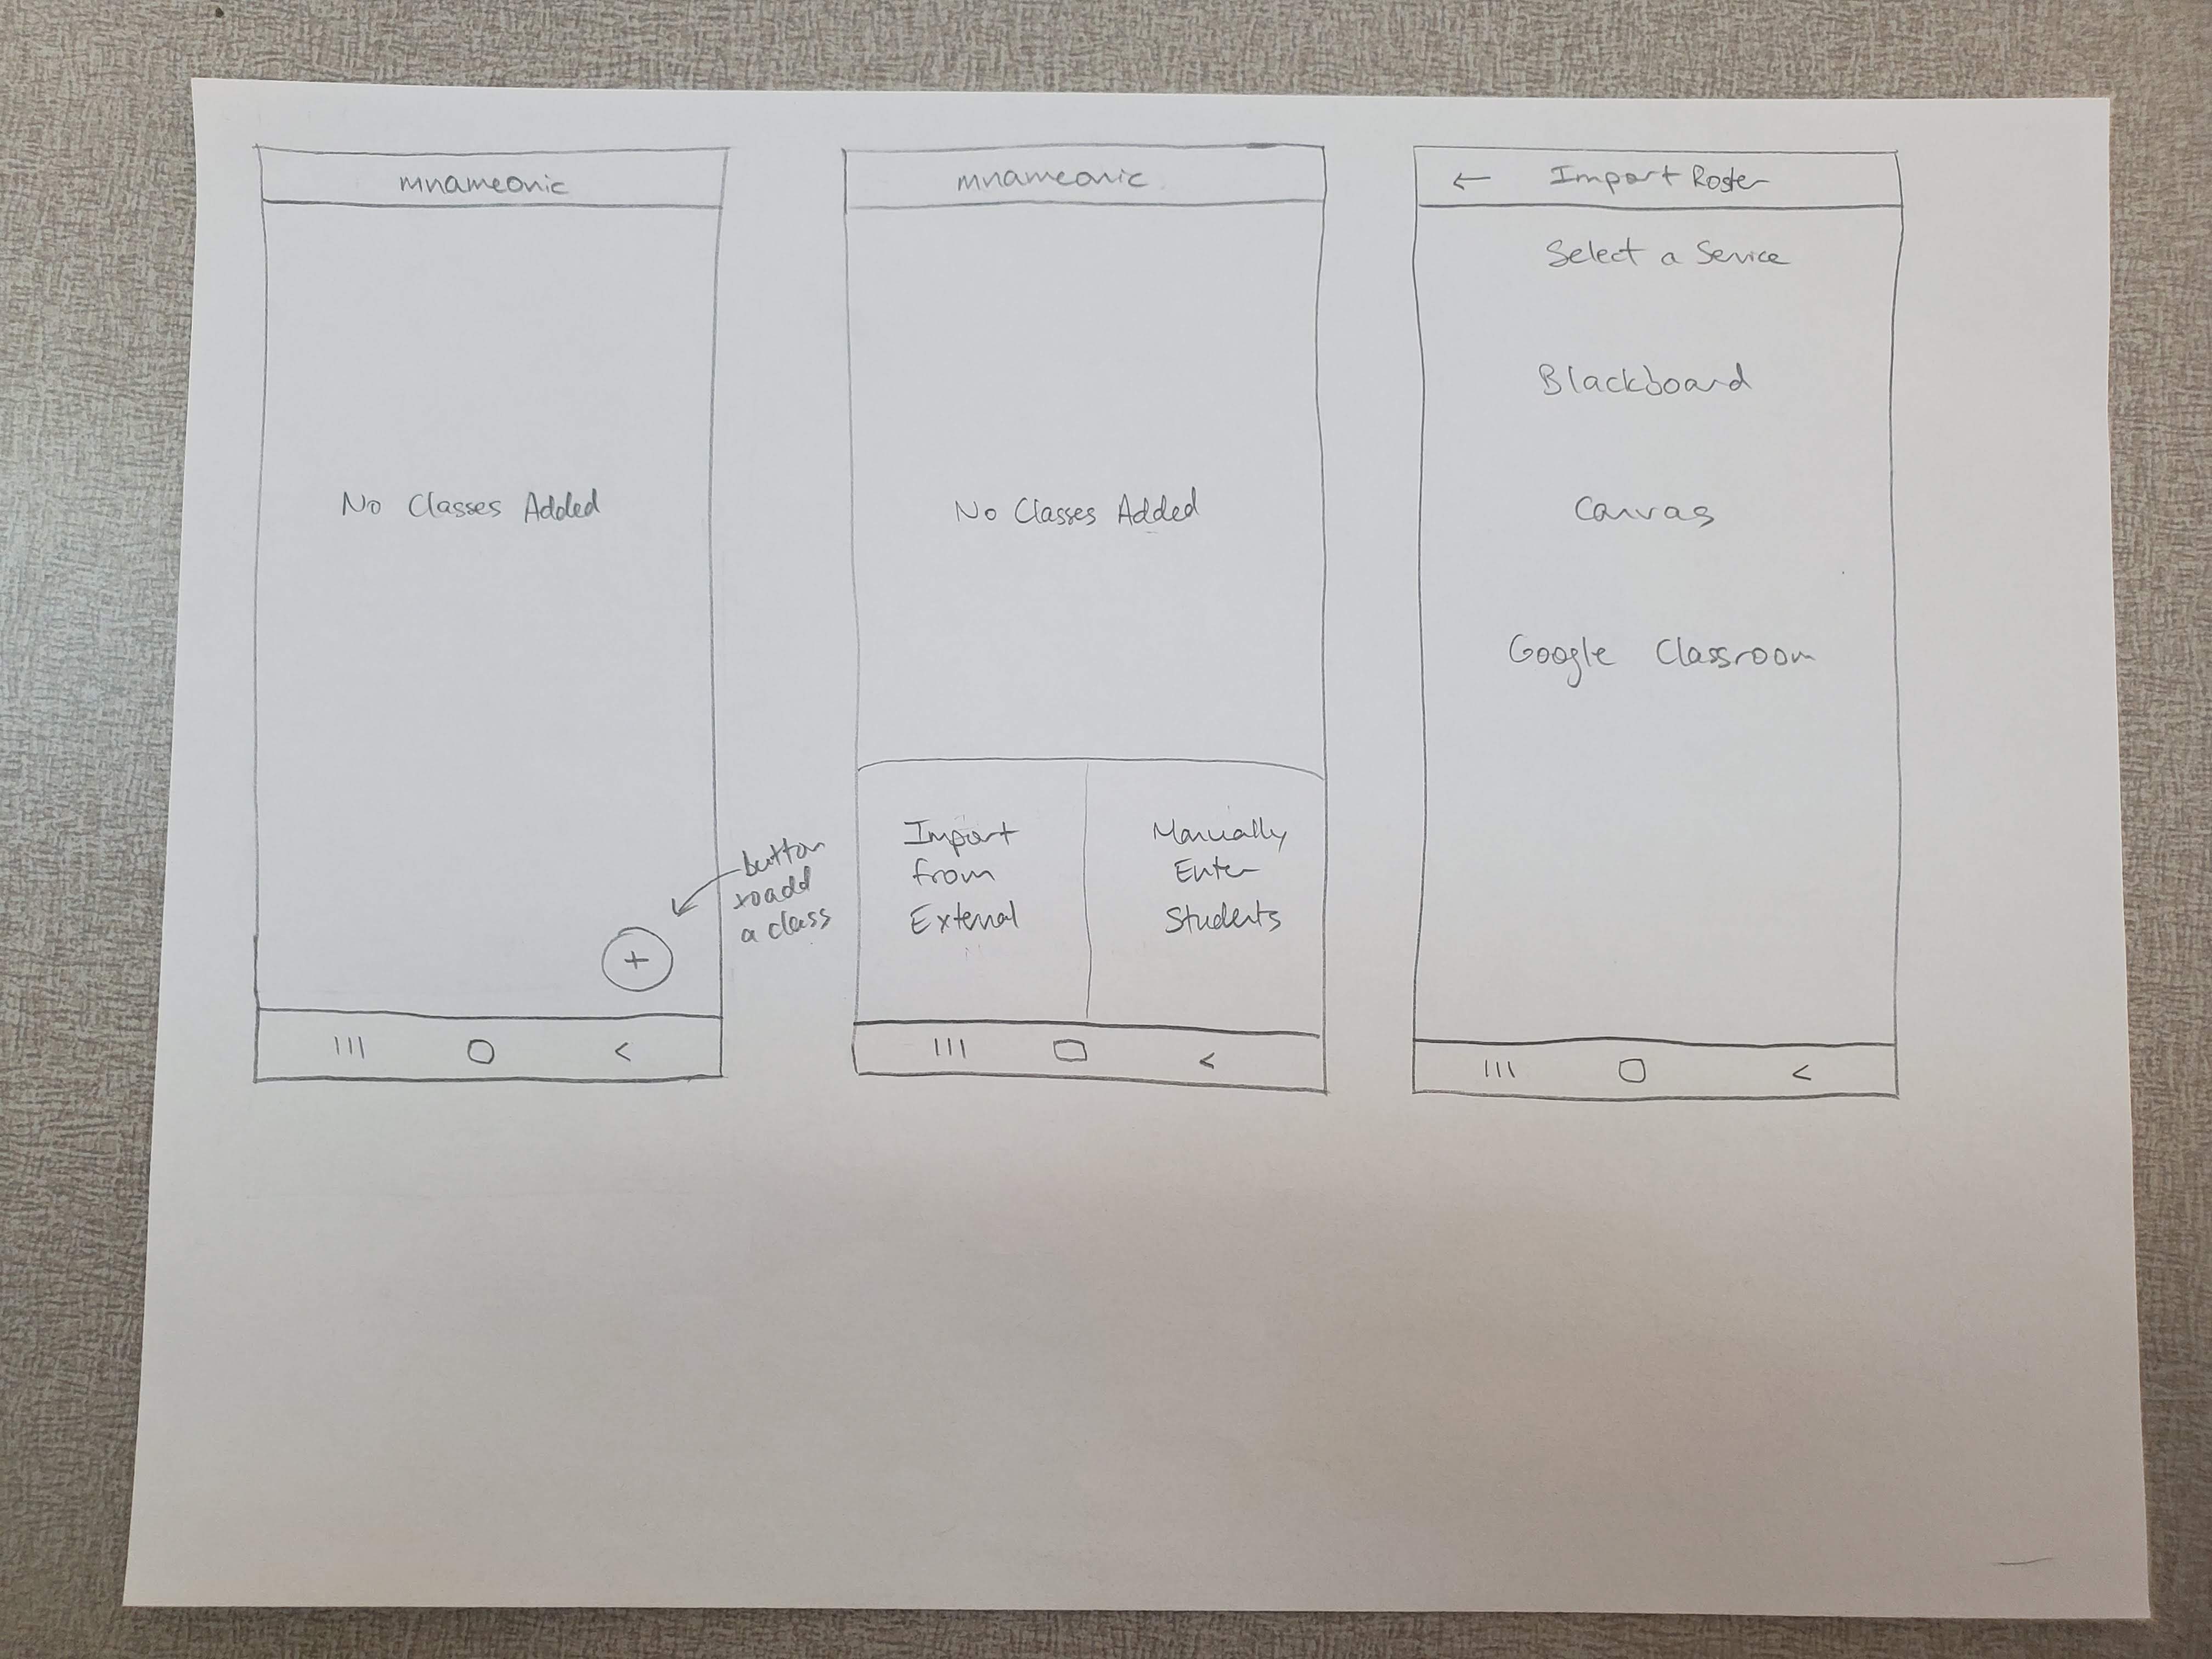 mnameonic
No Classes Added
button
to add
a class
+
mnameonic
No Classes Added
Import
from
External
Manually
Enter
Students
← Import Roster
Select a Service
Blackboard
Canvas
Google Classroom